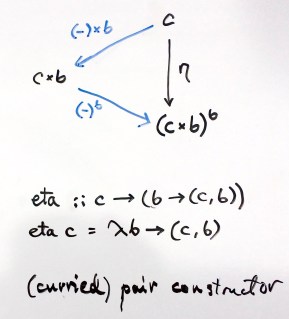 c
(-)×b
c×b
η
(-)ᵇ
(c×b)ᵇ
eta :: c → (b → (c,b))
eta c = λb → (c,b)
(curried) pair constructor